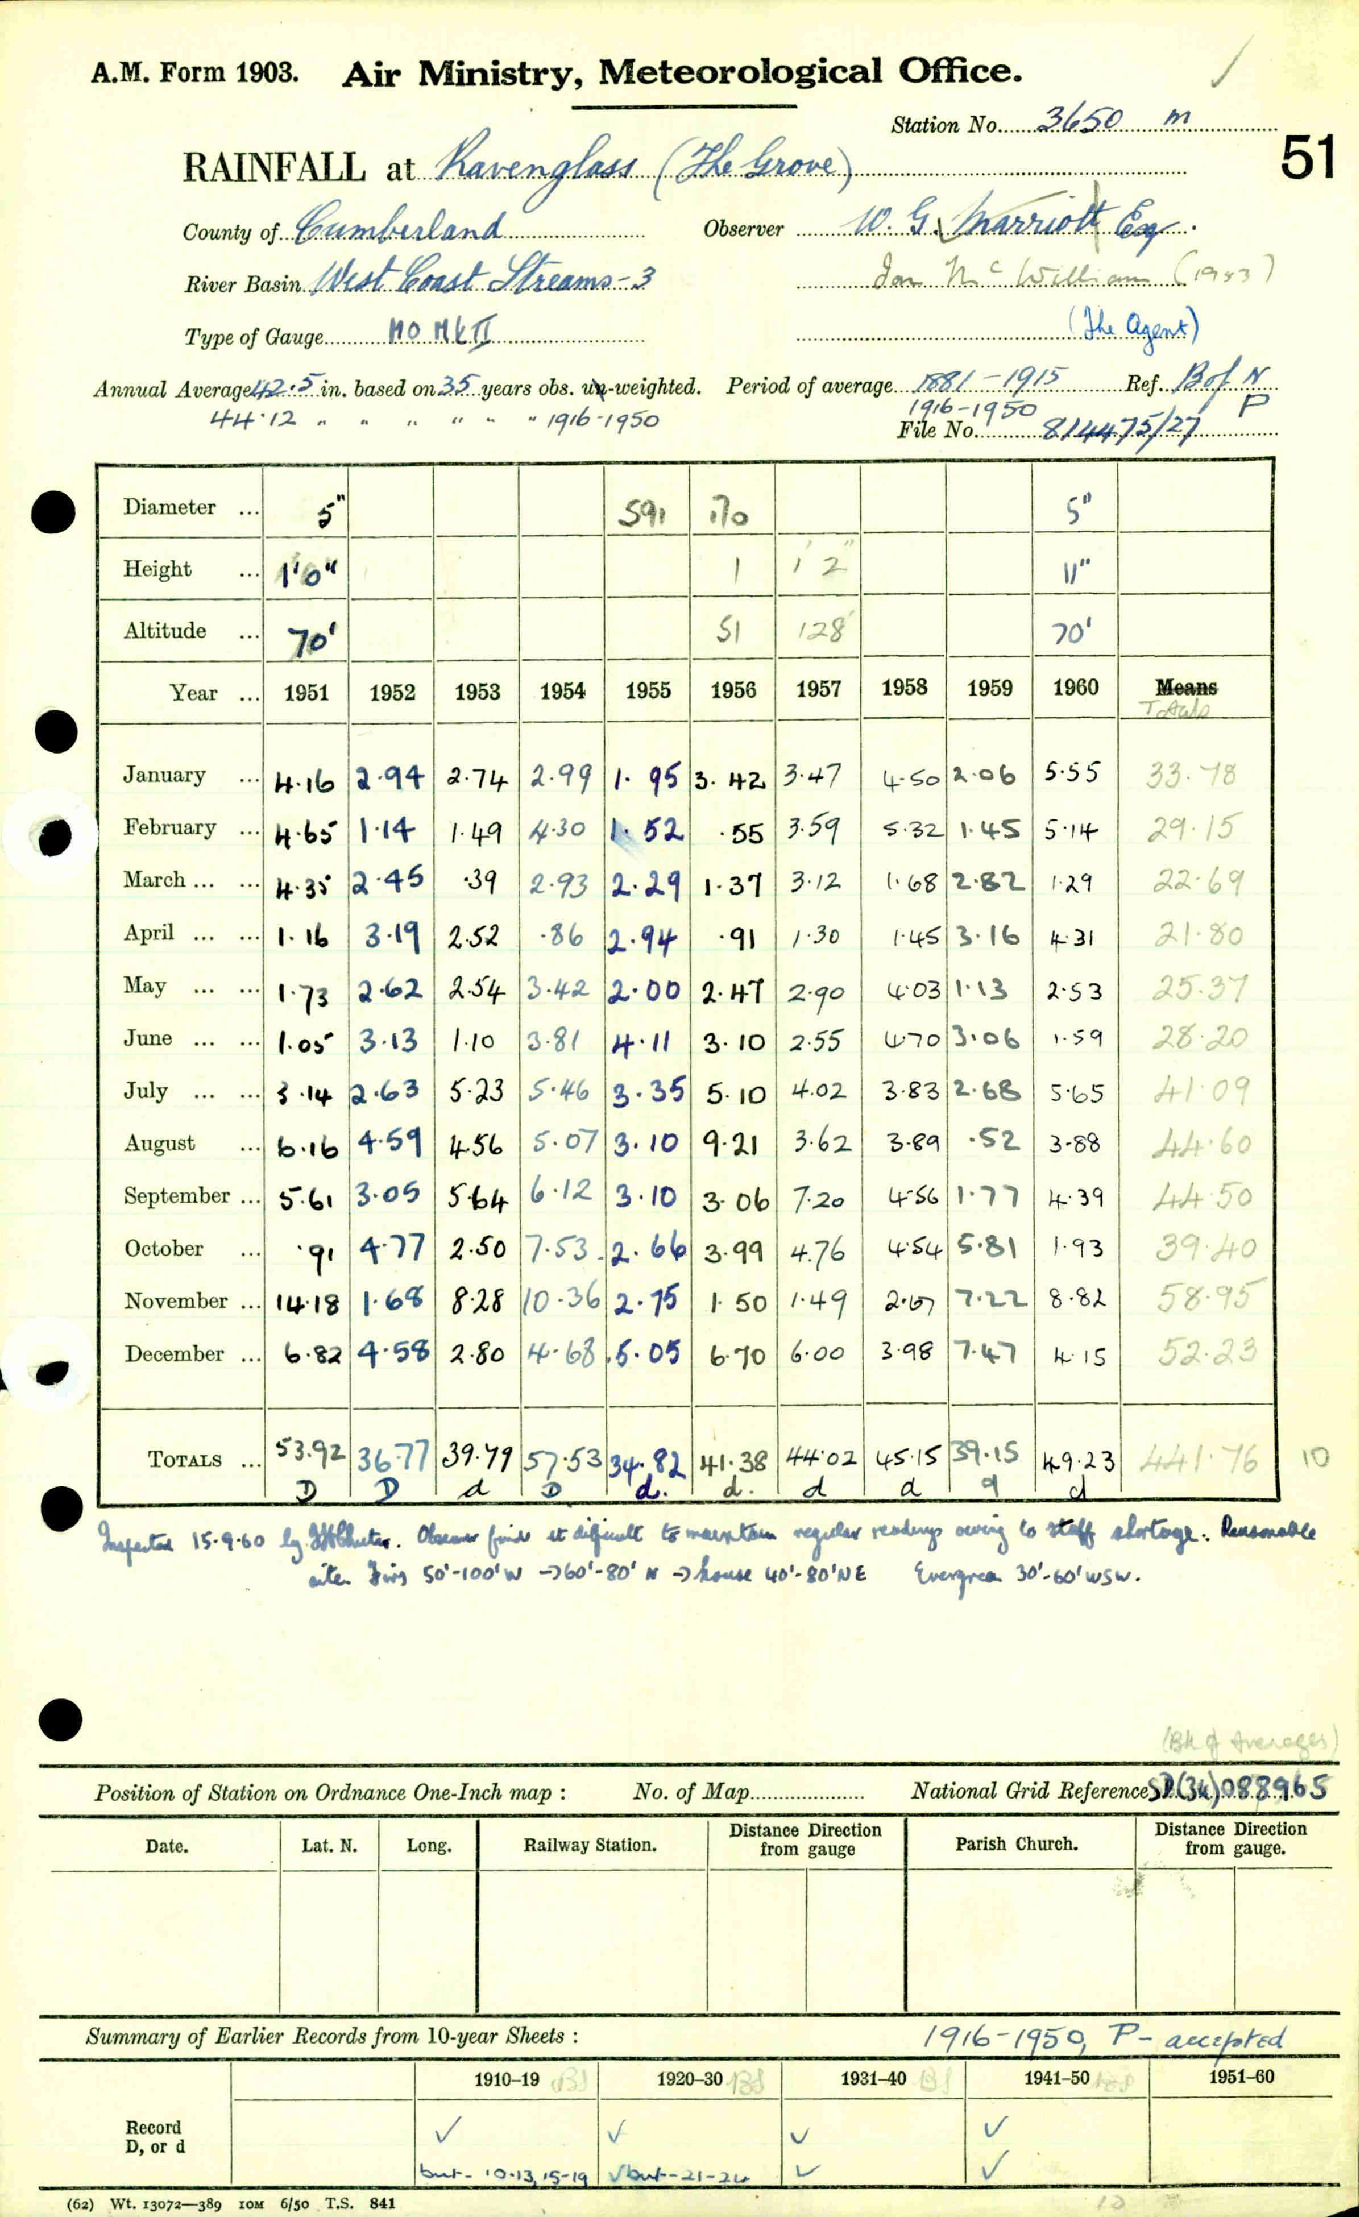 A.M. Form 1903. Air Ministry, Meteorological Office.
Station No. 3650 m
51
RAINFALL at Ravenglass (The Grove)
County of Cumberland Observer W. G. Marriott Esq.
River Basin West Coast Streams-3 Ian Mc William (1953)
Type of Gauge MO MK II (The Agent)
Annual Average 42.5 in. based on 35 years obs. un-weighted. Period of average 1881-1915 Ref. B of N
44.12 " " " " " " 1916-1950 1916-1950 P
File No. 814475/27
Diameter ... 5" 591 170 5"
Height ... 1'0" 1 1' 2" 11"
Altitude ... 70' 51 128' 70'
Year ... 1951 1952 1953 1954 1955 1956 1957 1958 1959 1960 Means
Totals
January ... 4.16 2.94 2.74 2.99 1.95 3.42 3.47 4.50 2.06 5.55 33.78
February ... 4.65 1.14 1.49 4.30 1.52 .55 3.59 5.32 1.45 5.14 29.15
March ... ... 4.35 2.45 .39 2.93 2.29 1.37 3.12 1.68 2.82 1.29 22.69
April ... ... 1.16 3.19 2.52 .86 2.94 .91 1.30 1.45 3.16 4.31 21.80
May ... ... 1.73 2.62 2.54 3.42 2.00 2.47 2.90 4.03 1.13 2.53 25.37
June ... ... 1.05 3.13 1.10 3.81 4.11 3.10 2.55 4.70 3.06 1.59 28.20
July ... ... 3.14 2.63 5.23 5.46 3.35 5.10 4.02 3.83 2.68 5.65 41.09
August ... 6.16 4.59 4.56 5.07 3.10 9.21 3.62 3.89 .52 3.88 44.60
September ... 5.61 3.05 5.64 6.12 3.10 3.06 7.20 4.56 1.77 4.39 44.50
October ... .91 4.77 2.50 7.53 2.66 3.99 4.76 4.54 5.81 1.93 39.40
November ... 14.18 1.68 8.28 10.36 2.75 1.50 1.49 2.67 7.22 8.82 58.95
December ... 6.82 4.58 2.80 4.68 5.05 6.70 6.00 3.98 7.47 4.15 52.23
TOTALS ... 53.92 36.77 39.79 57.53 34.82 41.38 44.02 45.15 39.15 49.23 441.76 10
D D d D d. d. d d d d
Inspected 15.9.60 by Observer finds it difficult to maintain regular readings owing to staff shortage. Reasonable
site. Firs 50'-100' W → 60'-80' N → house 40'-80' NE Evergreen 30'-60' WSW.
(Bk of Averages)
Position of Station on Ordnance One-Inch map : No. of Map National Grid Reference SD(34)088965
Date. Lat. N. Long. Railway Station. Distance Direction from gauge Parish Church. Distance Direction from gauge.
Summary of Earlier Records from 10-year Sheets : 1916-1950, P - accepted
1910-19 BS 1920-30 BS 1931-40 BS 1941-50 BS 1951-60
Record ✓ ✓ ✓ ✓
D, or d
but- 10-13, 15-19 ✓but-21-24 ✓ ✓
(62) Wt. 13072—389 10M 6/50 T.S. 841 10